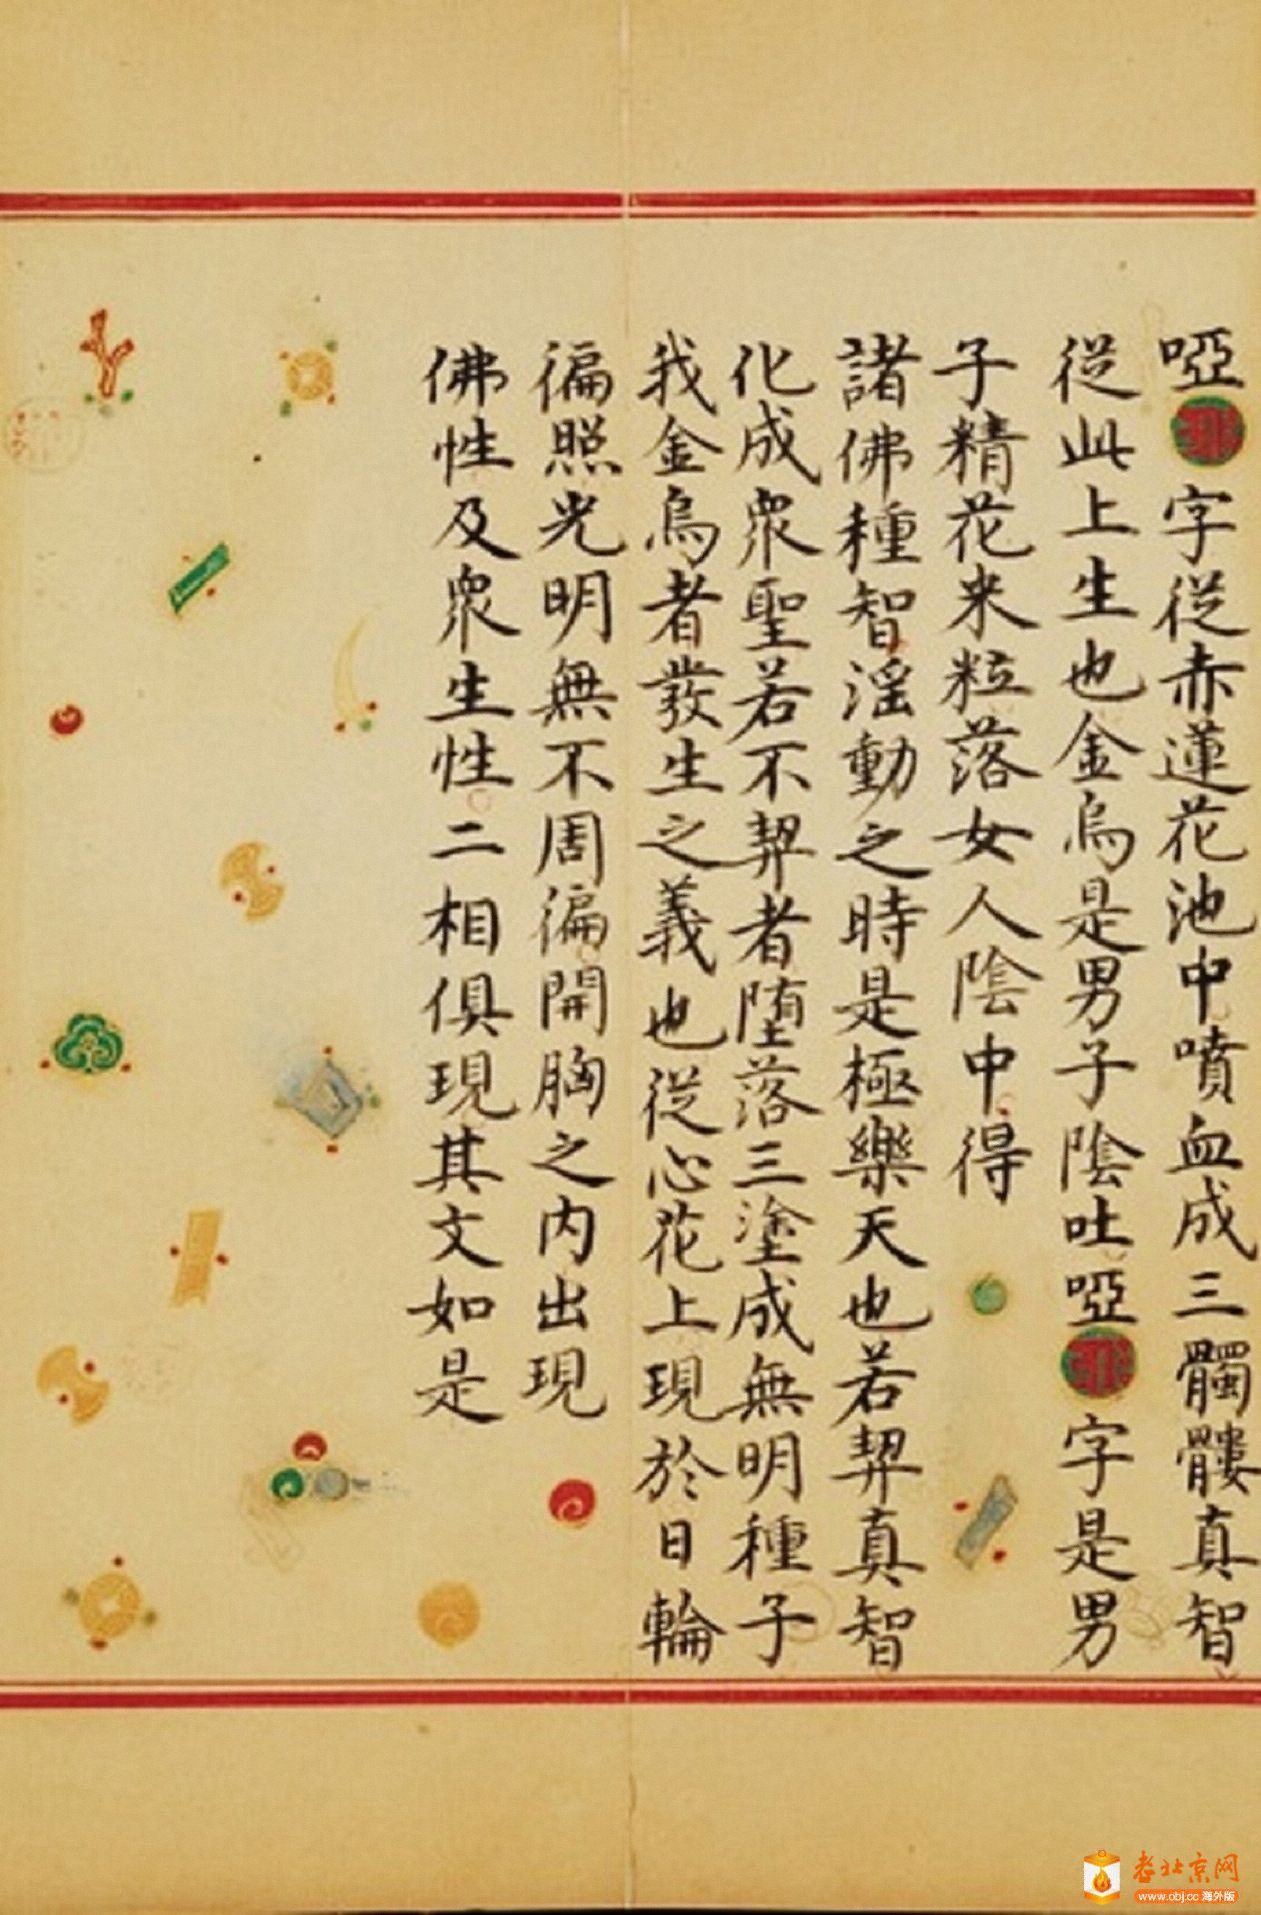 啞字從赤蓮花池中噴血成三髑髏真智
從此上生也金烏是男子陰吐啞字是男
子精花米粒落女人陰中得
諸佛種智淫動之時是極樂天也若契真智
化成衆聖若不契者墮落三塗成無明種子
我金烏者發生之義也從心花上現於日輪
徧照光明無不周徧開胸之内出現
佛性及衆生性二相俱現其文如是
老北京网
www.obj.cc 海外版